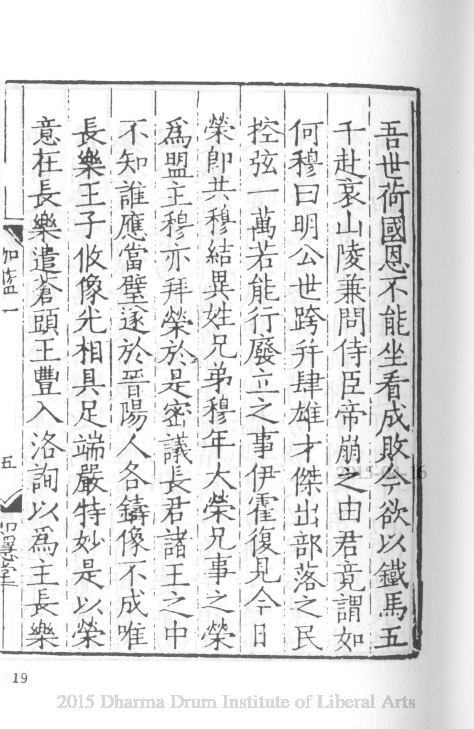 吾世荷國恩不能坐看成敗今欲以鐵馬五
千赴哀山陵兼問侍臣帝崩之由君竟謂如
何穆曰明公世跨并肆雄才傑出部落之民
控弦一萬若能行廢立之事伊霍復見今日
榮即共穆結異姓兄弟穆年大榮兄事之榮
爲盟主穆亦拜榮於是密議長君諸王之中
不知誰應當璧遂於晉陽人各鑄像不成唯
長樂王子攸像光相具足端嚴特妙是以榮
意在長樂遣蒼頭王豐入洛詢以爲主長樂
伽藍一
五
19
2015 Dharma Drum Institute of Liberal Arts